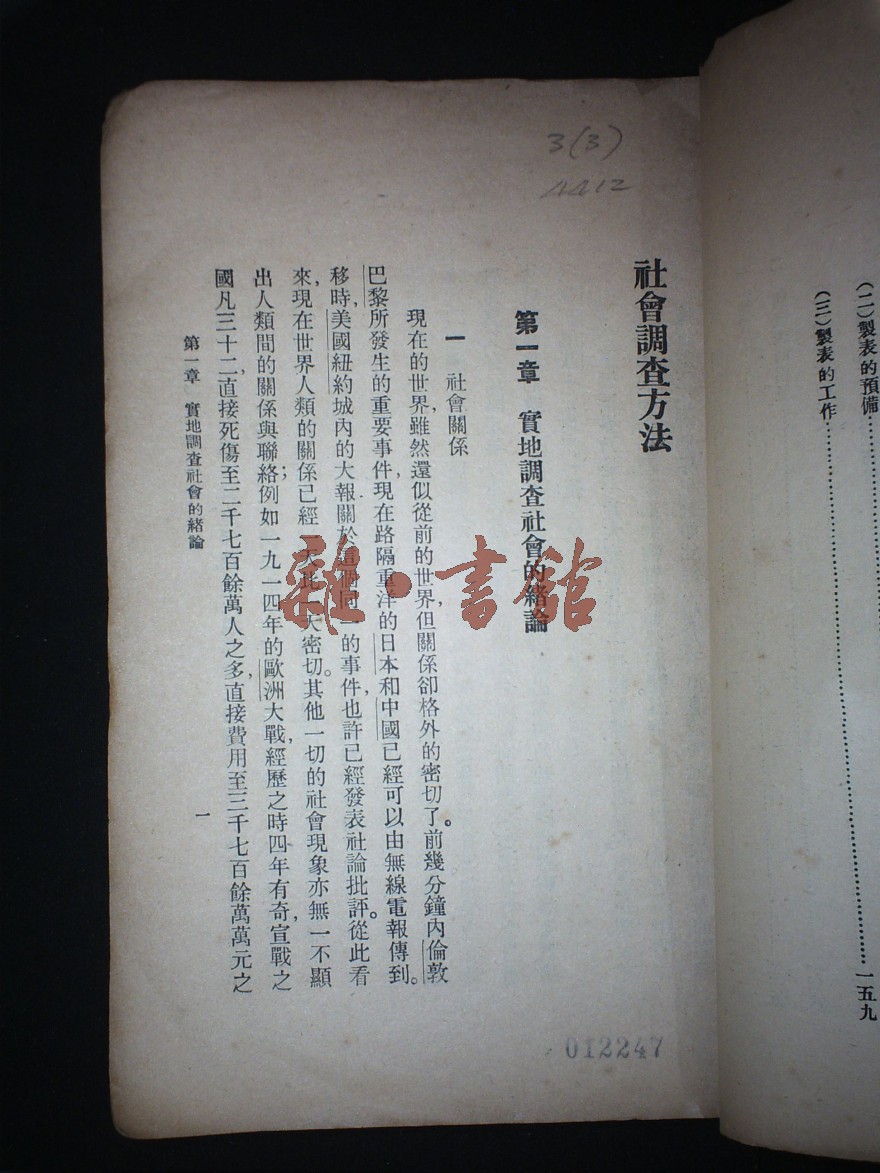 (二)製表的預備
(三)製表的工作……一五九
3(3)
社會調查方法
第一章 實地調查社會的緒論
一 社會關係
現在的世界,雖然還似從前的世界,但關係卻格外的密切了。前幾分鐘內倫敦
巴黎所發生的重要事件,現在路隔重洋的日本和中國已經可以由無線電報傳到。
移時,美國紐約城內的大報關於這個同一的事件,也許已經發表社論批評。從此看
來,現在世界人類的關係已經一天比一天密切。其他一切的社會現象亦無一不顯
出人類間的關係與聯絡;例如一九一四年的歐洲大戰,經歷之時四年有奇,宣戰之
國凡三十二,直接死傷至二千七百餘萬人之多,直接費用至三千七百餘萬萬元之
第一章 實地調查社會的緒論
一
012247
雜·書館